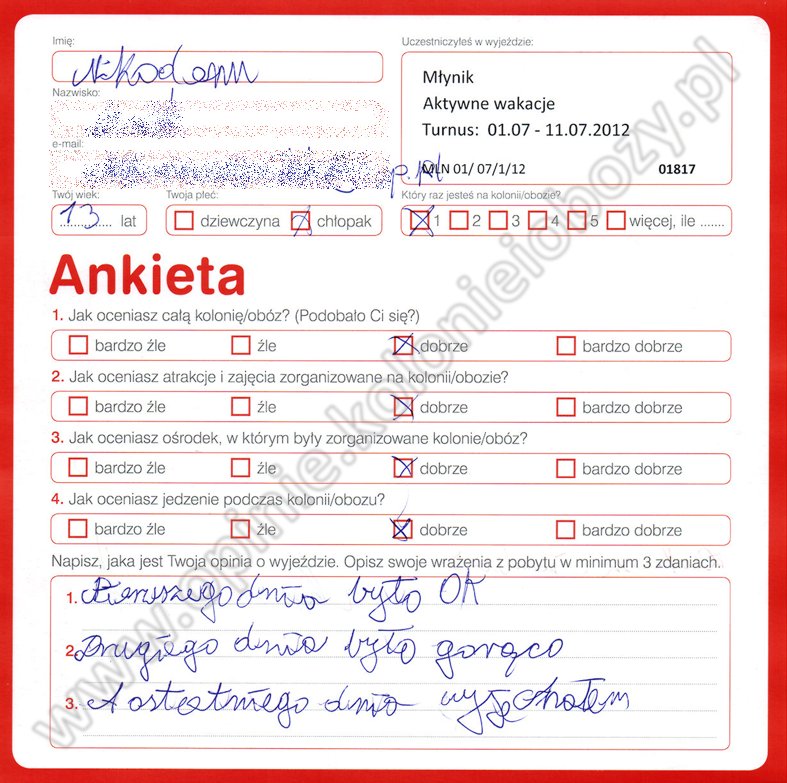 Imię:
Uczestniczyłeś w wyjeździe:
Nikodem
Młynik
Aktywne wakacje
Turnus: 01.07 - 11.07.2012
Nazwisko:
e-mail:
p.pl
MLN 01/ 07/1/12
01817
Twój wiek:
Twoja płeć:
Który raz jesteś na kolonii/obozie?
13 lat
dziewczyna
chłopak
1 2 3 4 5 więcej, ile .......
Ankieta
1. Jak oceniasz całą kolonię/obóz? (Podobało Ci się?)
bardzo źle źle dobrze bardzo dobrze
2. Jak oceniasz atrakcje i zajęcia zorganizowane na kolonii/obozie?
bardzo źle źle dobrze bardzo dobrze
3. Jak oceniasz ośrodek, w którym były zorganizowane kolonie/obóz?
bardzo źle źle dobrze bardzo dobrze
4. Jak oceniasz jedzenie podczas kolonii/obozu?
bardzo źle źle dobrze bardzo dobrze
Napisz, jaka jest Twoja opinia o wyjeździe. Opisz swoje wrażenia z pobytu w minimum 3 zdaniach.
1. Pierwszego dnia było OK
2. Drugiego dnia było gorąco
3. A ostatniego dnia wyjechałem
www.opinie.kolonieiobozy.pl